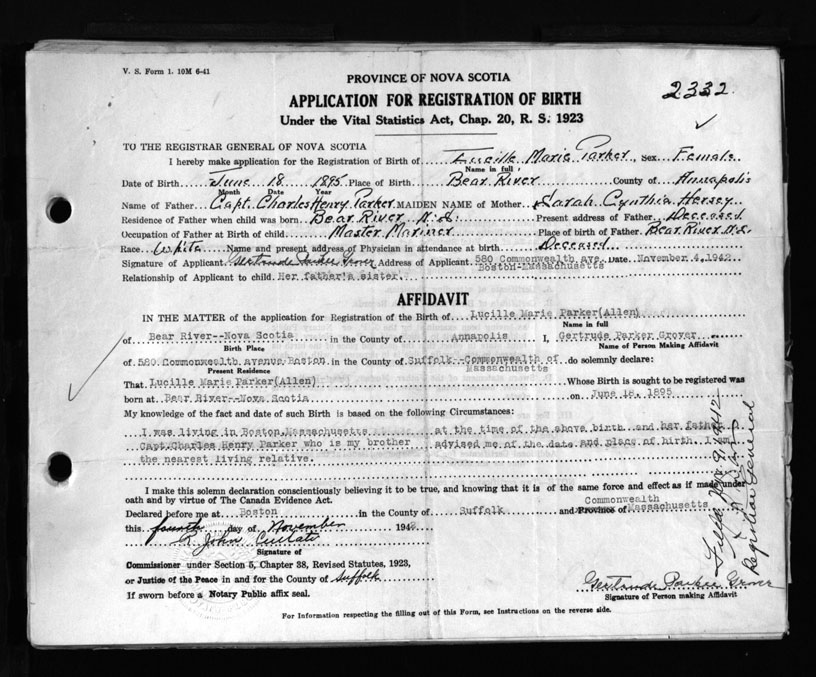 V. S. Form 1. 10M 6-41
PROVINCE OF NOVA SCOTIA
2332
APPLICATION FOR REGISTRATION OF BIRTH
Under the Vital Statistics Act, Chap. 20, R. S. 1923
TO THE REGISTRAR GENERAL OF NOVA SCOTIA
I hereby make application for the Registration of Birth of Lucille Marie Parker, Sex Female
Name in full
Date of Birth June 18 1895 Place of Birth Bear River County of Annapolis
Month Day Year
Name of Father Capt. Charles Henry Parker MAIDEN NAME of Mother Sarah Cynthia Hersey
Residence of Father when child was born Bear River N.S. Present address of Father Deceased
Occupation of Father at Birth of child Master Mariner Place of birth of Father Bear River N.S.
Race White Name and present address of Physician in attendance at birth Deceased
Signature of Applicant Gertrude Parker Grover Address of Applicant 580 Commonwealth ave. Date November 4, 1942
Boston-Massachusetts
Relationship of Applicant to child Her father's sister
AFFIDAVIT
IN THE MATTER of the application for Registration of the Birth of Lucille Marie Parker(Allen)
Name in full
of Bear River--Nova Scotia in the County of Annapolis I, Gertrude Parker Grover
Birth Place Name of Person Making Affidavit
of 580 Commonwealth avenue Boston in the County of Suffolk--Commonwealth of do solemnly declare:
Present Residence Massachusetts
That Lucille Marie Parker(Allen) Whose Birth is sought to be registered was
born at Bear River--Nova Scotia on June 18, 1895
My knowledge of the fact and date of such Birth is based on the following Circumstances:
I was living in Boston, Massachusetts at the time of the above birth and her father
Capt. Charles Henry Parker who is my brother advised me of the date and place of birth. I am
the nearest living relative.
I make this solemn declaration conscientiously believing it to be true, and knowing that it is of the same force and effect as if made under
oath and by virtue of The Canada Evidence Act.
Commonwealth
Declared before me at Boston in the County of Suffolk and Province of Massachusetts
this fourth day of November 194
R. John
Signature of
Commissioner under Section 5, Chapter 38, Revised Statutes, 1923,
or Justice of the Peace in and for the County of Suffolk
Gertrude Parker Grover
Signature of Person making Affidavit
If sworn before a Notary Public affix seal.
For Information respecting the filling out of this Form, see Instructions on the reverse side.
Filed
Registrar General